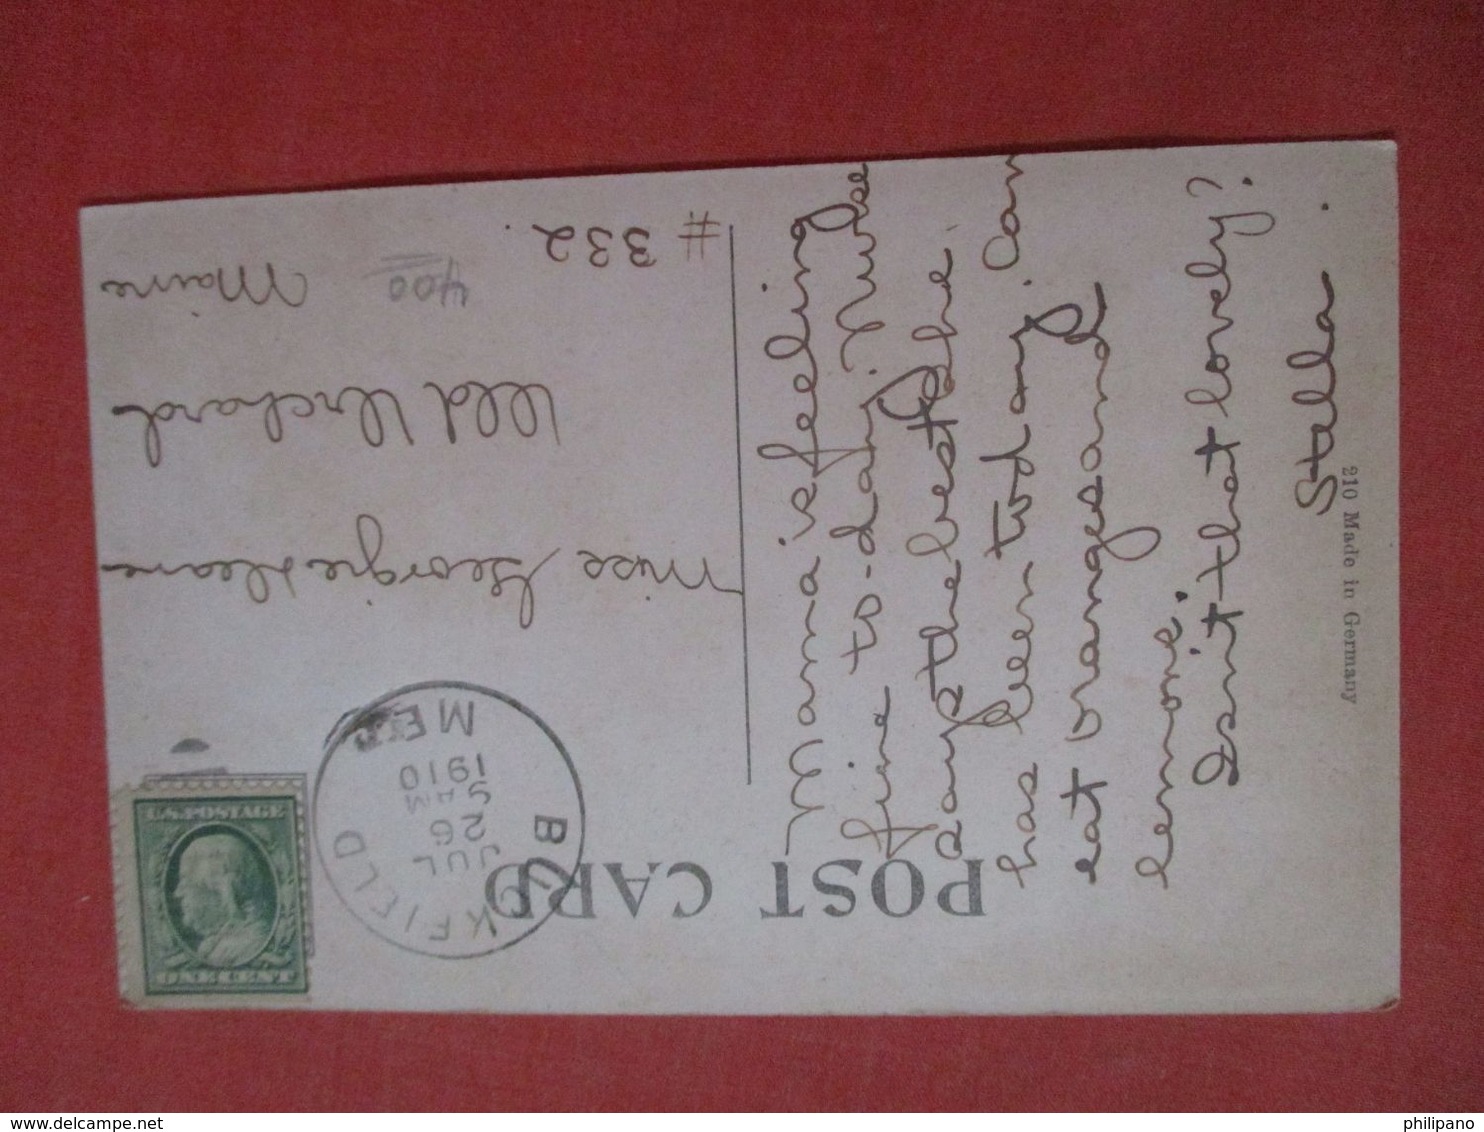 POST CARD
BUCKFIELD
JUL
26
5 AM
1910
ME.
U.S. POSTAGE
ONE CENT
Miss Georgie Deane
Old Orchard
Maine
# 332.
400
Mama is feeling
fine to-day. Nurse
says the best she
has been today. Can
eat oranges and
lemons.
Isn't that lovely?
Stella.
210 Made in Germany
philipano